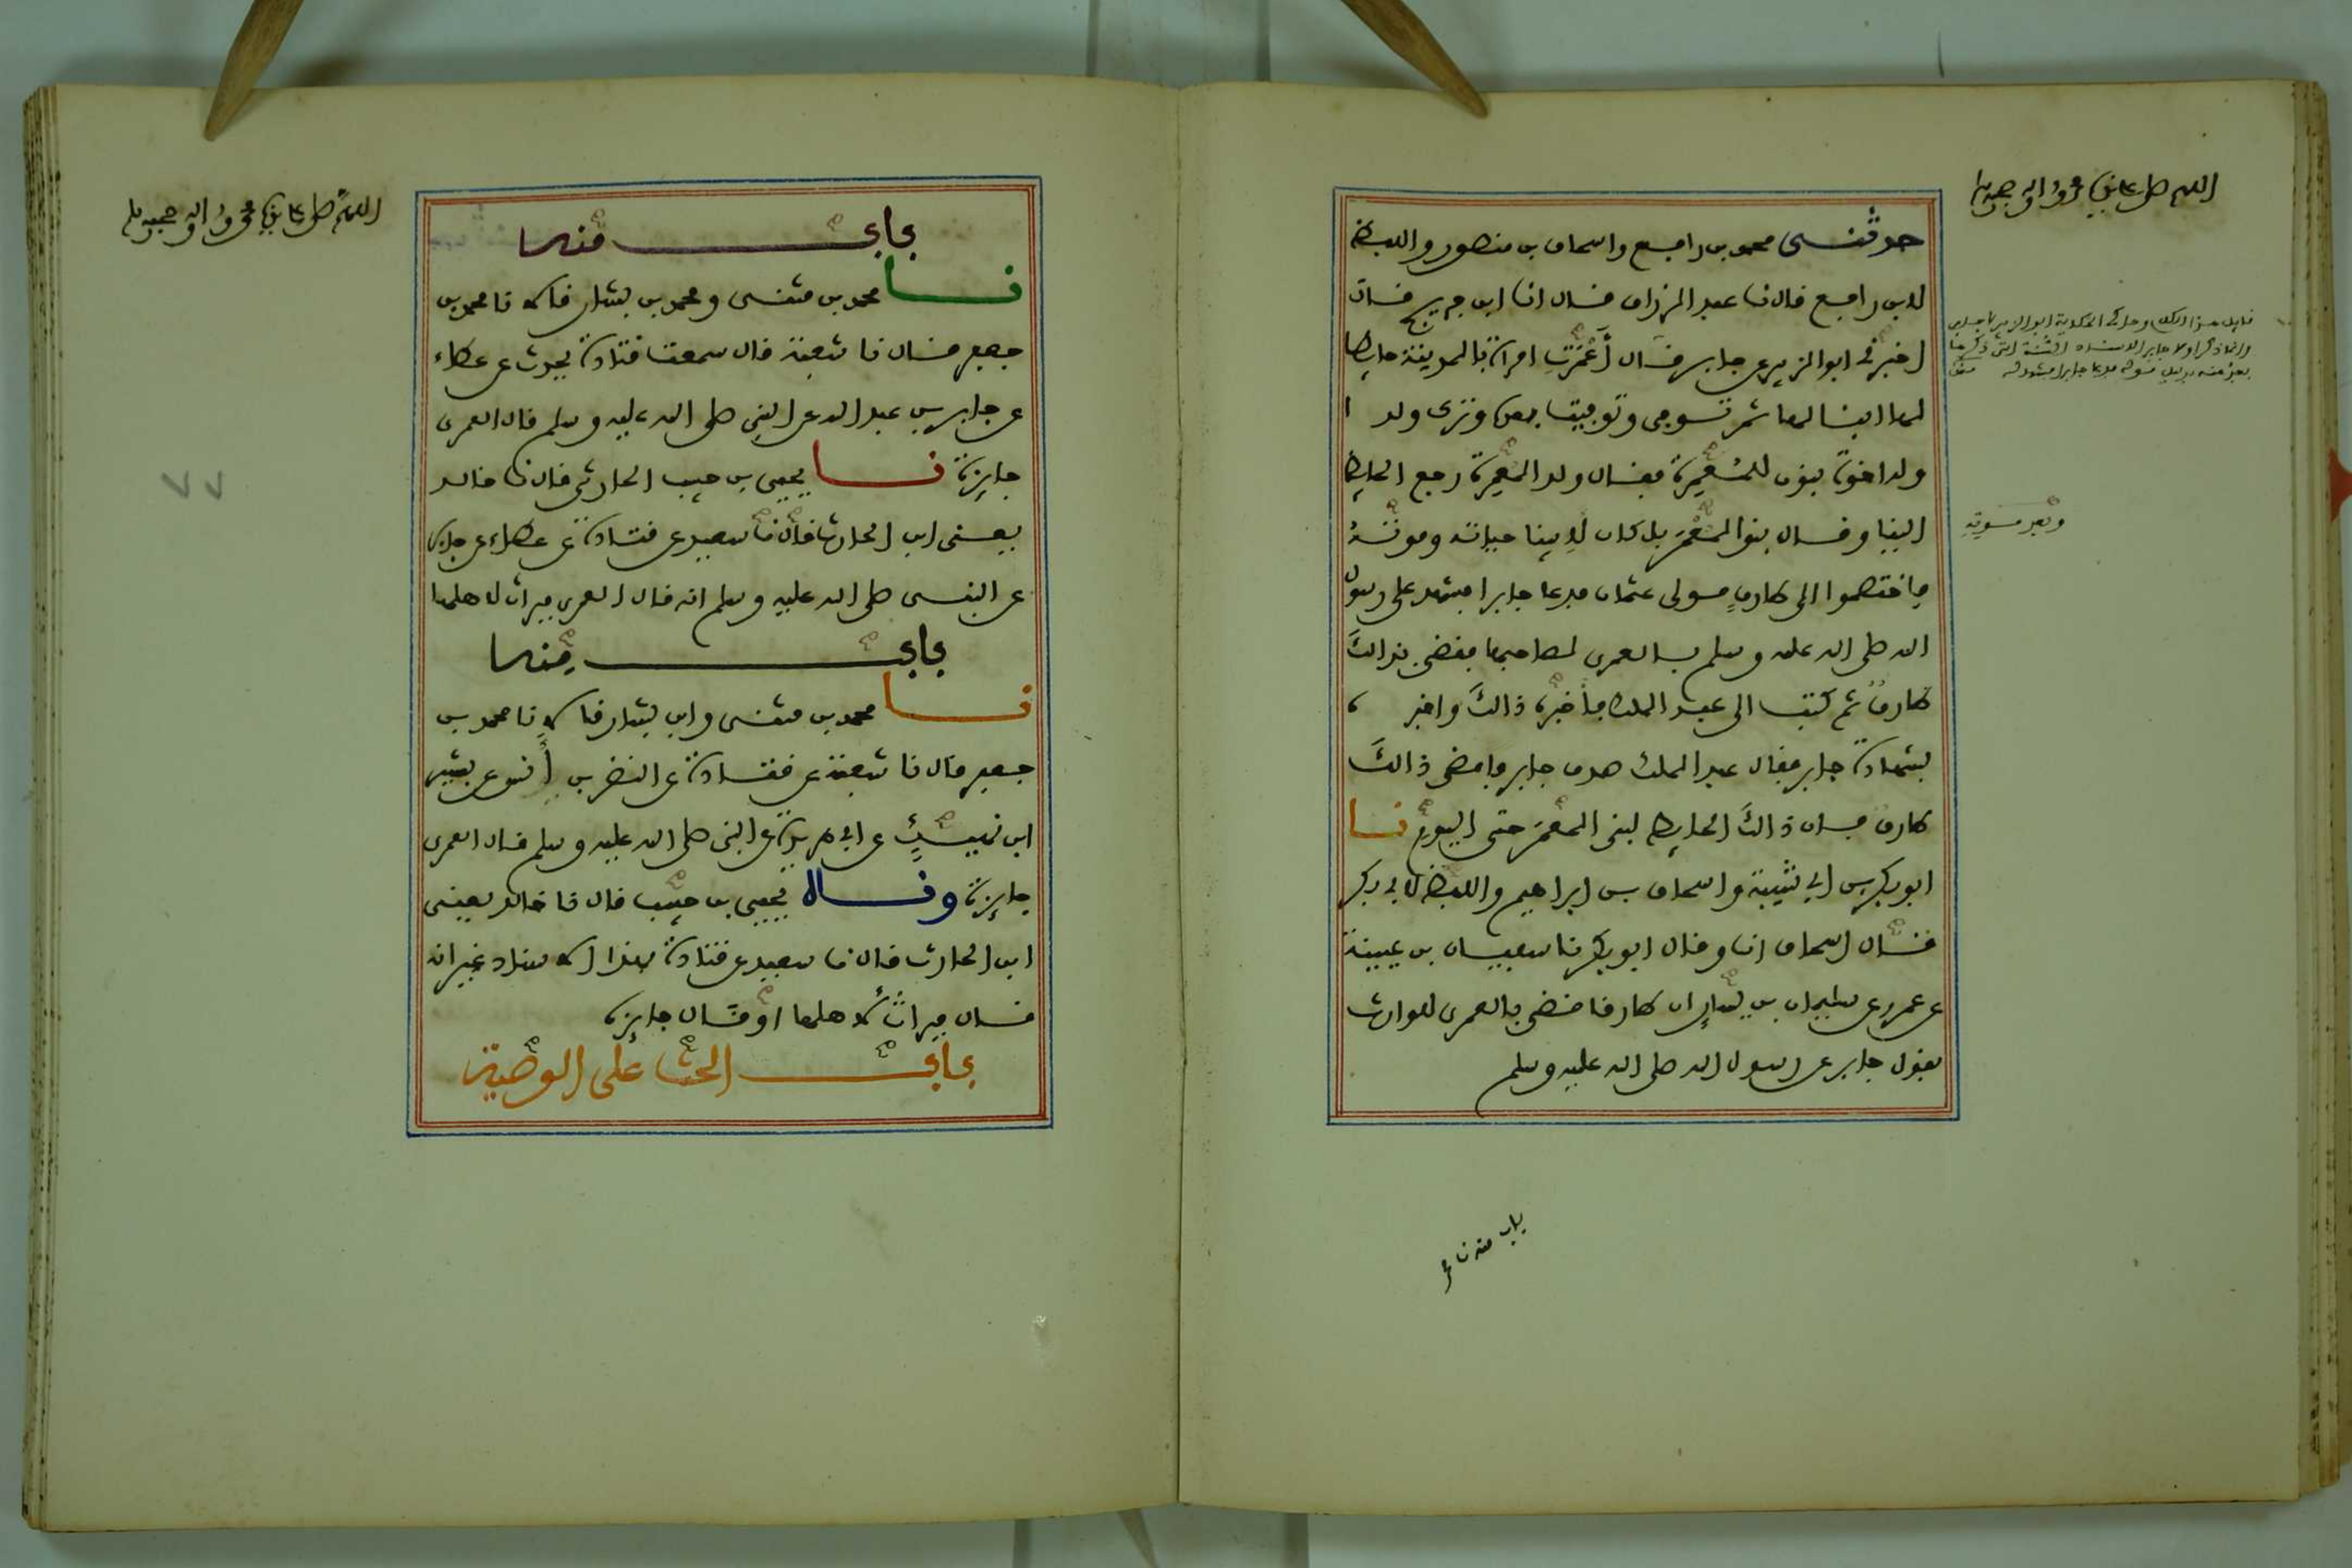 اللهم صل على نبيك محمد واله وصحبه
حدثنى محمد بن رابع واسحاق بن منصور واللبظ
لابن رابع قال نا عبد الرزاق قال انا ابن جريج قال
اخبرنى ابو الزبير عن جابر قال أعمرت امراة بالمدينة حايطا
لها ابنا لها ثم توبى وتوبيت بعده وترك ولدا
وله اخوة بنون للمعمرة بقال ولد المعمرة رجع الحايط
الينا وقال بنو المعمر بل كان لابينا حياته وموته
باختصموا الى طارق مولى عثمان بدعا جابرا بشهد على رسول
الله صلى الله عليه وسلم بالعمرى لصاحبها بقضى بذالك
طارق ثم كتب الى عبد الملك باخبره ذالك واخبره
بشهادة جابر بقال عبد الملك صدق جابر بامضى ذالك
طارق بان ذالك الحايط لبنى المعمر حتى اليوم نا
ابو بكر بن ابى شيبة واسحاق بن ابراهيم واللبظ لابى بكر
قال اسحاق انا وقال ابو بكر نا سبيان بن عيينة
عن عمرو عن سليمان بن يسار ان طارقا قضى بالعمرى للوارث
بقول جابر عن رسول الله صلى الله عليه وسلم
باب منه نا
اللهم صل على نبيك محمد واله وصحبه وسلم
باب منها
نا محمد بن مثنى ومحمد بن بشار قالا نا محمد بن
جعبر قال نا شعبة قال سمعت قتادة يحدث عن عطاء
عن جابر بن عبد الله عن النبى صلى الله عليه وسلم قال العمرى
جايزة نا يحيى بن حبيب الحارثى قال نا خالد
يعنى ابن الحارث قال نا سعيد عن قتادة عن عطاء عن جابر
عن النبى صلى الله عليه وسلم انه قال العمرى ميراث لاهلها
باب منها
نا محمد بن مثنى وابن بشار قالا نا محمد بن
جعبر قال نا شعبة عن قتادة عن النضر بن أنس عن بشير
ابن نهيك عن ابى هريرة عن النبى صلى الله عليه وسلم قال العمرى
جايزة وقال يحيى بن حبيب قال نا خالد يعنى
ابن الحارث قال نا سعيد عن قتادة بهذا الاسناد غير انه
قال ميراث لاهلها او قال جايزة
باب الحث على الوصية